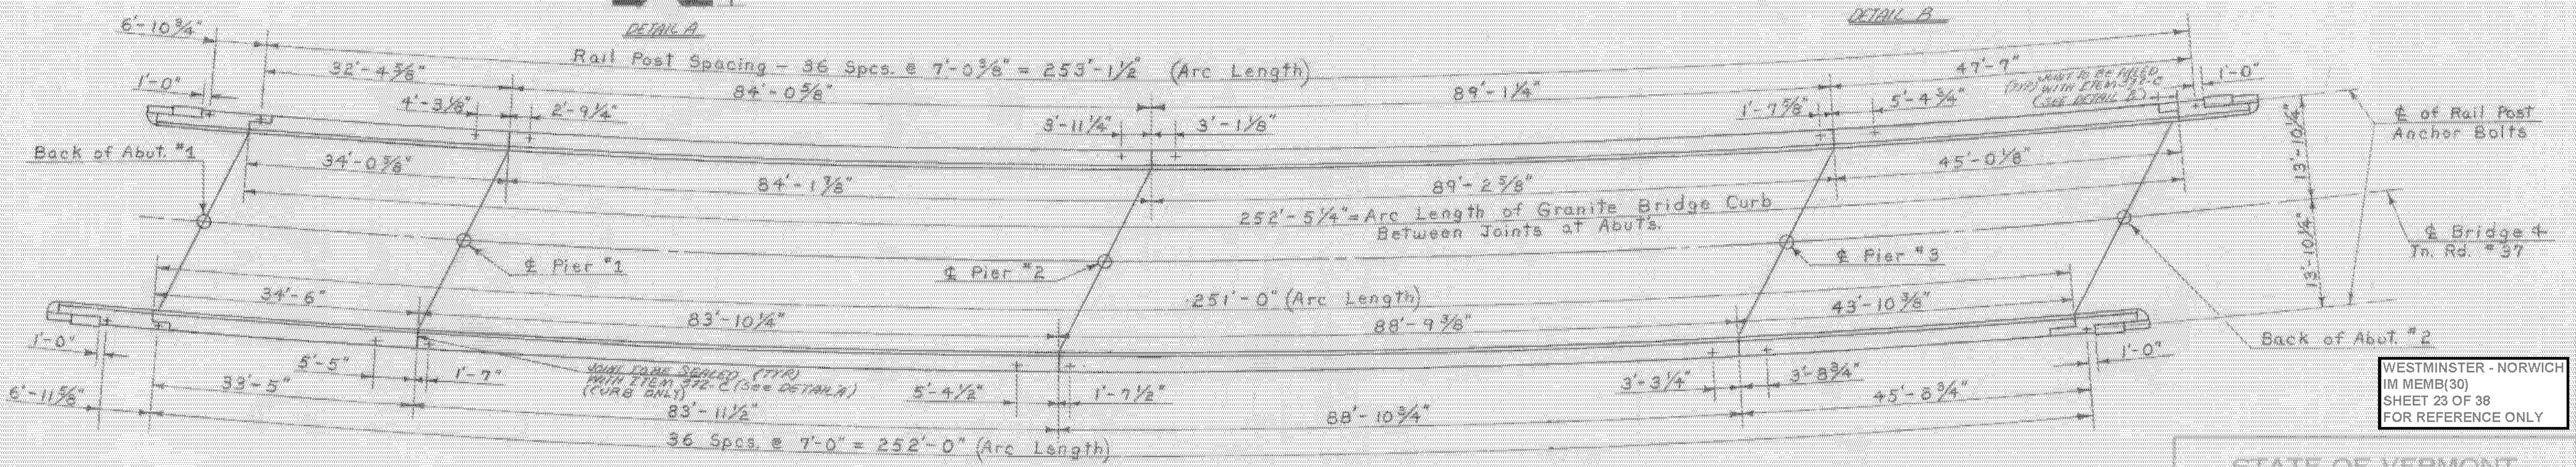 DETAIL A
DETAIL B
6'-10 3/4"
Rail Post Spacing - 36 Spcs. @ 7'-0 3/8" = 253'-1 1/2" (Arc Length)
1'-0"
32'-4 5/8"
84'-0 5/8"
89'-1 1/4"
47'-7"
1'-0"
4'-3 1/8"
2'-9 1/4"
3'-11 1/4"
3'-1 1/8"
1'-7 5/8"
5'-4 3/4"
JOINT TO BE FILLED
(TYP) WITH ITEM
(SEE DETAIL
℄ of Rail Post
Anchor Bolts
13'-10 1/4"
Back of Abut. #1
34'-0 5/8"
84'-1 7/8"
89'-2 5/8"
45'-0 1/8"
252'-5 1/4" = Arc Length of Granite Bridge Curb
Between Joints at Abut's.
℄ Pier #1
℄ Pier #2
℄ Pier #3
℄ Bridge &
Tn. Rd. #37
13'-10 1/4"
34'-6"
83'-10 1/4"
251'-0" (Arc Length)
88'-9 3/8"
43'-10 3/8"
Back of Abut. #2
1'-0"
5'-5"
1'-7"
JOINT TO BE SEALED (TYP)
WITH ITEM 972-C (SEE DETAIL A)
(CURB ONLY)
5'-4 1/2"
1'-7 1/2"
3'-3 1/4"
3'-8 3/4"
1'-0"
6'-11 5/8"
33'-5"
83'-11 1/2"
88'-10 3/4"
45'-8 3/4"
36 Spcs. @ 7'-0" = 252'-0" (Arc Length)
WESTMINSTER - NORWICH
IM MEMB(30)
SHEET 23 OF 38
FOR REFERENCE ONLY
STATE OF VERMONT